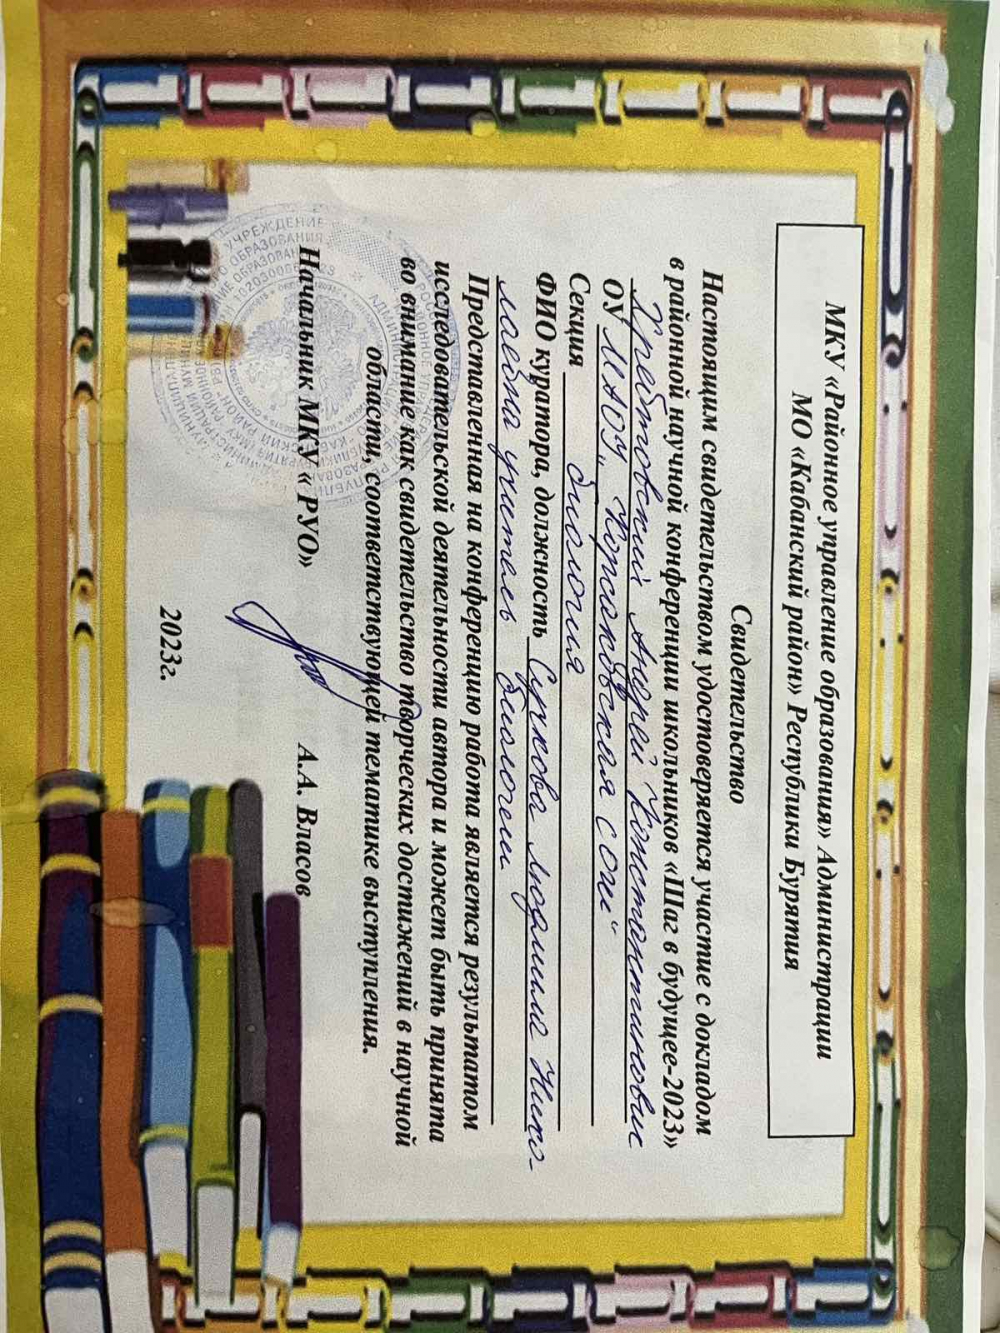 МКУ «Районное управление образования» Администрации
МО «Кабанский район» Республики Бурятия
Свидетельство
Настоящим свидетельством удостоверяется участие с докладом
в районной научной конференции школьников «Шаг в будущее-2023»
Хребтовский Андрей Константинович
ОУ МАОУ „Корсаковская СОШ“
Секция биология
ФИО куратора, должность Суркова Людмила Нико-
лаевна учитель биологии
Представленная на конференцию работа является результатом
исследовательской деятельности автора и может быть принята
во внимание как свидетельство творческих достижений в научной
области, соответствующей тематике выступления.
Начальник МКУ « РУО» А.А. Власов
2023г.